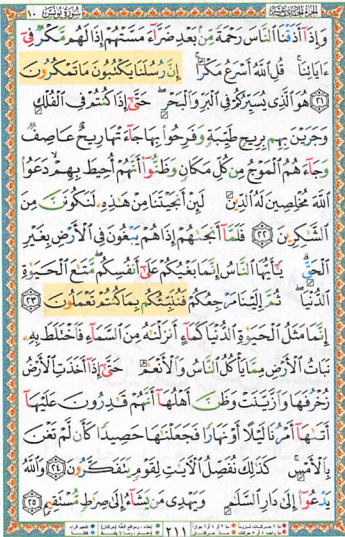 الجزء الحادي عشر ١٠ سورة يونس
وَإِذَآ أَذَقْنَا ٱلنَّاسَ رَحْمَةً مِّنۢ بَعْدِ ضَرَّآءَ مَسَّتْهُمْ إِذَا لَهُم مَّكْرٌ فِىٓ
ءَايَاتِنَا ۚ قُلِ ٱللَّهُ أَسْرَعُ مَكْرًا ۚ إِنَّ رُسُلَنَا يَكْتُبُونَ مَا تَمْكُرُونَ
﴿٢١﴾ هُوَ ٱلَّذِى يُسَيِّرُكُمْ فِى ٱلْبَرِّ وَٱلْبَحْرِ ۖ حَتَّىٰٓ إِذَا كُنتُمْ فِى ٱلْفُلْكِ
وَجَرَيْنَ بِهِم بِرِيحٍ طَيِّبَةٍ وَفَرِحُوا۟ بِهَا جَآءَتْهَا رِيحٌ عَاصِفٌ
وَجَآءَهُمُ ٱلْمَوْجُ مِن كُلِّ مَكَانٍ وَظَنُّوٓا۟ أَنَّهُمْ أُحِيطَ بِهِمْ ۙ دَعَوُا۟
ٱللَّهَ مُخْلِصِينَ لَهُ ٱلدِّينَ لَئِنْ أَنجَيْتَنَا مِنْ هَٰذِهِۦ لَنَكُونَنَّ مِنَ
ٱلشَّٰكِرِينَ ﴿٢٢﴾ فَلَمَّآ أَنجَىٰهُمْ إِذَا هُمْ يَبْغُونَ فِى ٱلْأَرْضِ بِغَيْرِ
ٱلْحَقِّ ۗ يَٰٓأَيُّهَا ٱلنَّاسُ إِنَّمَا بَغْيُكُمْ عَلَىٰٓ أَنفُسِكُم ۖ مَّتَٰعَ ٱلْحَيَوٰةِ
ٱلدُّنْيَا ۖ ثُمَّ إِلَيْنَا مَرْجِعُكُمْ فَنُنَبِّئُكُم بِمَا كُنتُمْ تَعْمَلُونَ ﴿٢٣﴾
إِنَّمَا مَثَلُ ٱلْحَيَوٰةِ ٱلدُّنْيَا كَمَآءٍ أَنزَلْنَٰهُ مِنَ ٱلسَّمَآءِ فَٱخْتَلَطَ بِهِۦ
نَبَاتُ ٱلْأَرْضِ مِمَّا يَأْكُلُ ٱلنَّاسُ وَٱلْأَنْعَٰمُ حَتَّىٰٓ إِذَآ أَخَذَتِ ٱلْأَرْضُ
زُخْرُفَهَا وَٱزَّيَّنَتْ وَظَنَّ أَهْلُهَآ أَنَّهُمْ قَٰدِرُونَ عَلَيْهَآ
أَتَىٰهَآ أَمْرُنَا لَيْلًا أَوْ نَهَارًا فَجَعَلْنَٰهَا حَصِيدًا كَأَن لَّمْ تَغْنَ
بِٱلْأَمْسِ ۚ كَذَٰلِكَ نُفَصِّلُ ٱلْءَايَٰتِ لِقَوْمٍ يَتَفَكَّرُونَ ﴿٢٤﴾ وَٱللَّهُ
يَدْعُوٓا۟ إِلَىٰ دَارِ ٱلسَّلَٰمِ وَيَهْدِى مَن يَشَآءُ إِلَىٰ صِرَٰطٍ مُّسْتَقِيمٍ ﴿٢٥﴾
٢١١